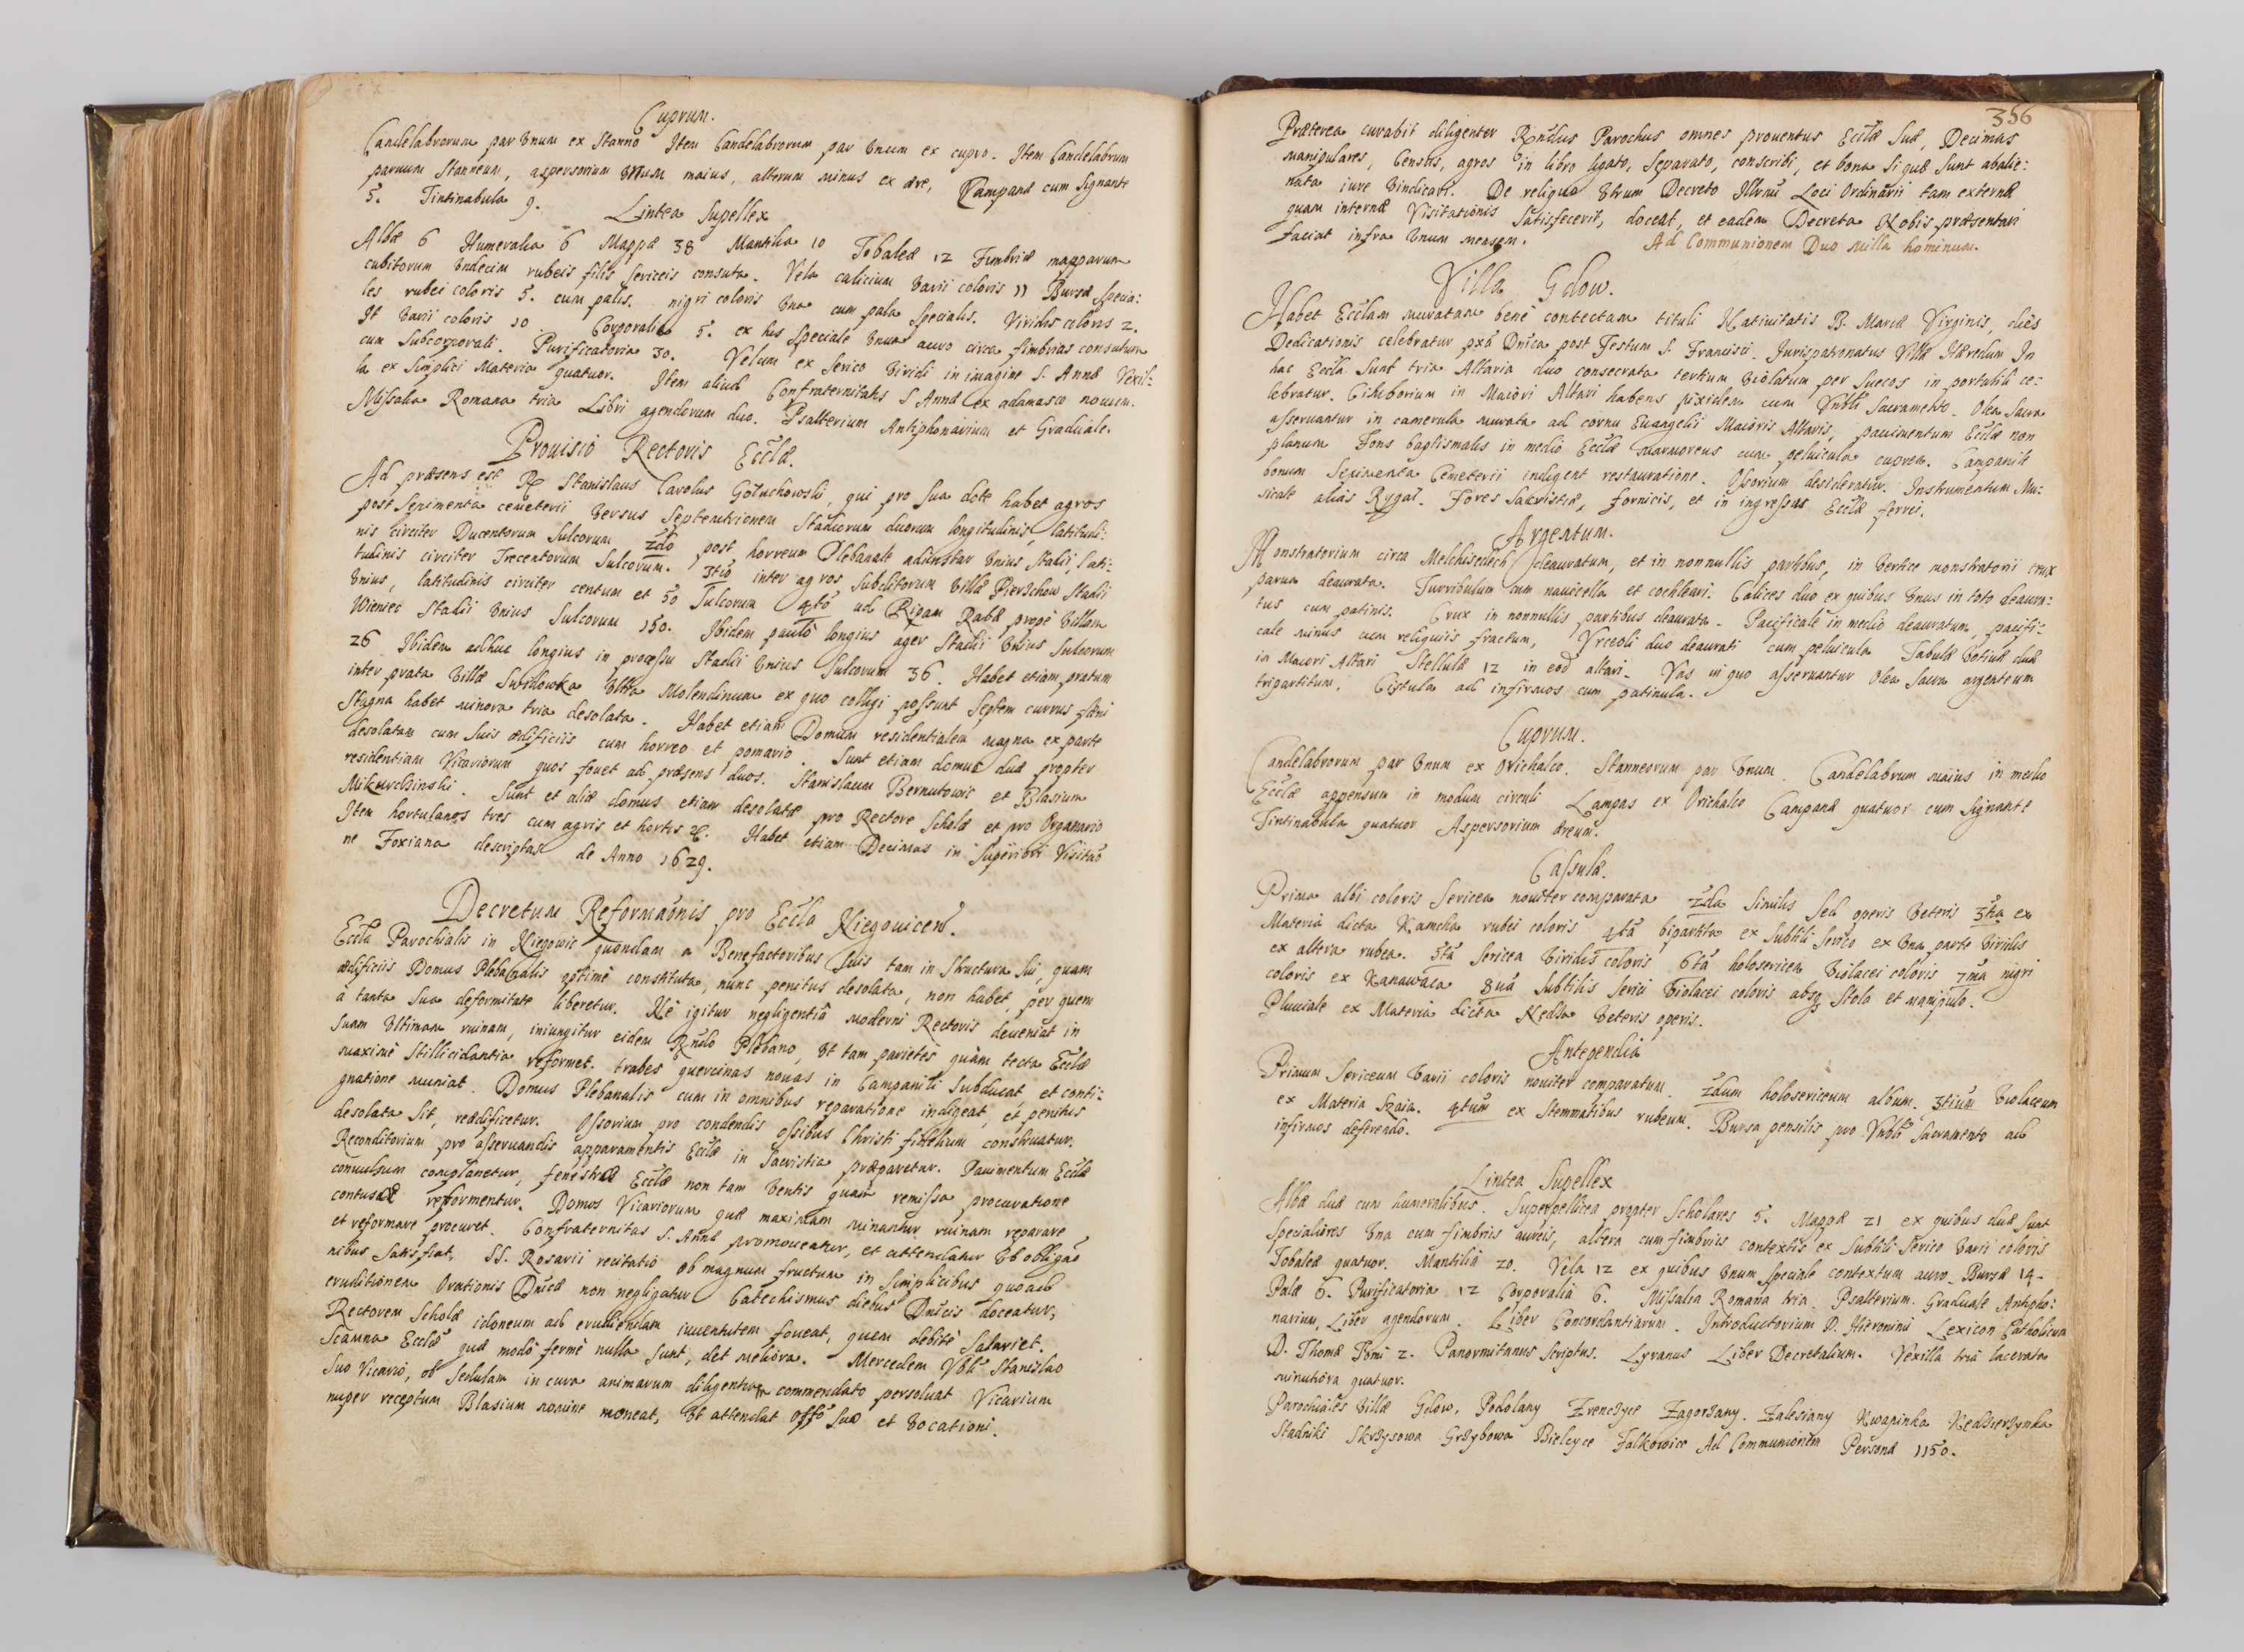 Cuprum.
Candelabrorum par vnum ex Stanno Item Candelabrorum par vnum ex cupro. Item Candelabrum
paruum Stanneum, aspersorium vnum maius, alterum minus ex ære, Campanæ cum Signante
5. Tintinabula 9.
Lintea Supellex
Albæ 6 Humeralia 6 Mappæ 38 Mantilia 10 Tobaleæ 12 Fimbriæ mapparum
cubitorum vndecim rubeis filis sericeis consuta. Vela calicium varii coloris 11 Bursæ specia:
les rubei coloris 5. cum palis. nigri coloris vna cum pala specialis. Viridis coloris 2.
It varii coloris 10 Corporalia 5. ex his speciale vnum auro circa fimbrias consutum
cum Subcorporali. Purificatoria 30. Velum ex serico viridi in imagine S. Annæ Vexil:
la ex simplici materia quatuor. Item aliud Confraternitatis S Annæ ex adamasco nouum.
Missalia Romana tria Libri agendorum duo. Psalterium Antiphonarium et Graduale.
Prouisio Rectoris Eccłæ.
Ad præsens est R Stanislaus Carolus Gołuchowski, qui pro sua dote habet agros
post Sepimenta cemeterii versus Septemtrionem Stadiorum duorum longitudinis, latitudi:
nis circiter Ducentorum Sulcorum 2do post horreum Plebanale adiunctar vnius Stadii, lati:
tudinis circiter Trecentorum Sulcorum. 3tio inter agros subditorum villæ Pierzchow Stadii
vnius, latitudinis circiter centum et 50 Sulcorum 4to ad Ripam Rabæ propè villam
Wieniec Stadii vnius Sulcorum 150. Ibidem paulò longius ager Stadii vnius Sulcorum
26 Ibidem adhuc longius in processu Stadii vnius Sulcorum 36. Habet etiam pratum
inter prata villæ Swidowka vltra Molendinum ex quo colligi possunt Septem currus fæni
Stagna habet minora tria desolata. Habet etiam Domum residentialem magna ex parte
desolatam cum suis ædificiis cum horreo et pomario. Sunt etiam domus duæ propter
residentiam Vicariorum quos fouet ad præsens duos. Stanislaum Bernutowic et Blasium
Mikurchinski. Sunt et aliæ domus etiam desolatæ pro Rectore Scholæ et pro Organario
Item hortulanos tres cum agris et hortis &. Habet etiam Decimas in superiori Visitaõ
ne Foxiana descriptas de Anno 1629.
Decretum Reformaõnis pro Eccła Niegouicen.
Eccła Parochialis in Niegowic quondam a Benefactoribus suis tam in structura sui, quam
ædificiis Domus Plebanalis optimè constituta, nunc penitus desolata, non habet, per quem
a tanta sua deformitate liberetur. Nè igitur negligentiâ moderni Rectoris deueniat in
suam vltimam ruinam, iniungitur eidem Rndo Plebano, vt tam parietes quàm tecta Eccłæ
maximè stillicidantia reformet. trabes quercinas nouas in Campanili subducat, et conti:
gnatione muniat. Domus Plebanalis cum in omnibus reparatione indigeat, et penitus
desolata sit, reædificetur. Ossorium pro condendis ossibus Christi fidelium construatur.
Reconditorium pro asseruandis apparamentis Eccłæ in Sacristia præparetur. Pauimentum Eccłæ
conuulsum complanetur, fenestræ Eccłæ non tam ventis quàm remissa procuratione
contusæ reformentur. Domos Vicariorum quæ maximam minantur ruinam reparare
et reformare procuret. Confraternitas S. Annæ promoueatur, et attendatur vt obligaõ
nibus satisfiat. SS. Rosarii recitatio ob magnum fructum in simplicibus quoad
eruditionem Orationis Dnicæ non negligatur Catechismus diebus Dnicis doceatur,
Rectorem Scholæ idoneum ad erudiendam iuuentutem foueat, quem debitè salariet.
Scamna Eccłæ quæ modò fermè nulla sunt, det meliora. Mercedem Vbli Stanislao
suo Vicario, ob sedulam in cura animarum diligentiam commendato persoluat Vicarium
nuper receptum Blasium nomine moneat, vt attendat offo suo et vocationi.
356
Præterea curabit diligenter Rndus Parochus omnes prouentus Eccłæ suæ, Decimas
manipulares, Census, agros in libro ligato, separato, conscribi, et bona si quæ sunt abalie:
nata iure vindicari. De reliquo vtrum Decreto Illrmi Loci Ordinarii tam externæ
quam internæ Visitationis satisfecerit, doceat, et eadem Decreta Nobis præsentari
faciat infra vnum mensem.
Ad Communionem Duo milla hominum.
Villa Gdow.
Habet Eccłam muratam benè contectam tituli Natiuitatis B. Mariæ Virginis, dies
Dedicationis celebratur pxa Dnica post Festum S. Francisci. Jurispatronatus Villæ Hæredum In
hac Eccła sunt tria Altaria duo consecrata tertium violatum per Suecos in portatili ce:
lebratur. Ciborium in Maiori Altari habens pixidem cum Vnbli Sacramento. Olea Sacra
asseruantur in camerula murata ad cornu Euangelii Maioris Altaris, pauimentum Eccłæ non
planum Fons baptismalis in medio Eccłæ marmoreus cum peluicula cuprea. Campanile
bonum Sepimenta Cemeterii indigent restauratione. Ossorium desideratur. Instrumentum Mu:
sicale aliàs Rygał. Fores Sacristiæ, fornicis, et in ingressus Eccłæ ferreæ.
Argentum.
Monstratorium circa Melchisedech deauratum, et in nonnullis partibus, in vertice monstratorii crux
parum deaurata. Turribulum cum nauicella et cochleari. Calices duo ex quibus vnus in toto deaura:
tus cum patinis. Crux in nonnullis partibus deaurata. Pacificale in medio deauratum, pacifi:
cale minus cum reliquiis fractum, Vrceoli duo deaurati cum peluicula Tabulæ votiuæ duæ
in Maiori Altari Stellulæ 12 in eod altari. Vas in quo asseruantur Olea Sacra argenteum
tripartitum. Cistula ad infirmos cum patinula.
Cuprum.
Candelabrorum par vnum ex Orichalco. Stanneorum par vnum. Candelabrum maius in medio
Eccłæ appensum in modum circuli Lampas ex Orichalco Campanæ quatuor cum Signante
Tintinabula quatuor Aspersorium æreum.
Casulæ.
Prima albi coloris sericea nouiter comparata 2da similis sed operis veteris 3tia ex
Materia dicta Kamcha rubei coloris 4ta bipartita ex subtili serico ex vna parte viridis
ex altera rubea. 5ta sericea viridis coloris 6ta holosericea violacei coloris 7ma nigri
coloris ex Kanawaca 8ua subtilis serici violacei coloris absq stola et manipulo.
Pluuiale ex Materia dicta Kedla veteris operis.
Antependia
Primum sericeum varii coloris nouiter comparatum. 2dum holosericeum album. 3tium violaceum
ex Materia Szaia. 4tum ex stemmatibus rubeum. Bursa pensilis pro Vnbli Sacramento ad
infirmos deferendo.
Lintea Supellex
Albæ duæ cum humeralibus. Superpellicea propter Scholares 5. Mappæ 21 ex quibus duæ sunt
specialiores vna cum fimbriis aureis, altera cum fimbriis contextis ex subtili serico varii coloris
Tobaleæ quatuor. Mantilia 20. Vela 12 ex quibus vnum speciale contextum auro. Bursæ 14.
Palæ 6. Purificatoria 12 Corporalia 6. Missalia Romana tria. Psalterium. Graduale Antipho:
narium, Liber agendorum. Liber Concordantiarum. Introductorium D. Hieronimi Lexicon Catholicum
D. Thomæ Tomi 2. Panormitanus scriptus. Lyranus Liber Decretalium. Vexilla tria lacerata
minutiora quatuor.
Parochiales villæ Gdow, Podolany Zrenczyce Zagorzany. Zalesiany Kwapinka Kedzierzynka
Stadniki Skrzysowa Grzybowa Bielczyce Falkowice Ad Communionem Personæ 1150.